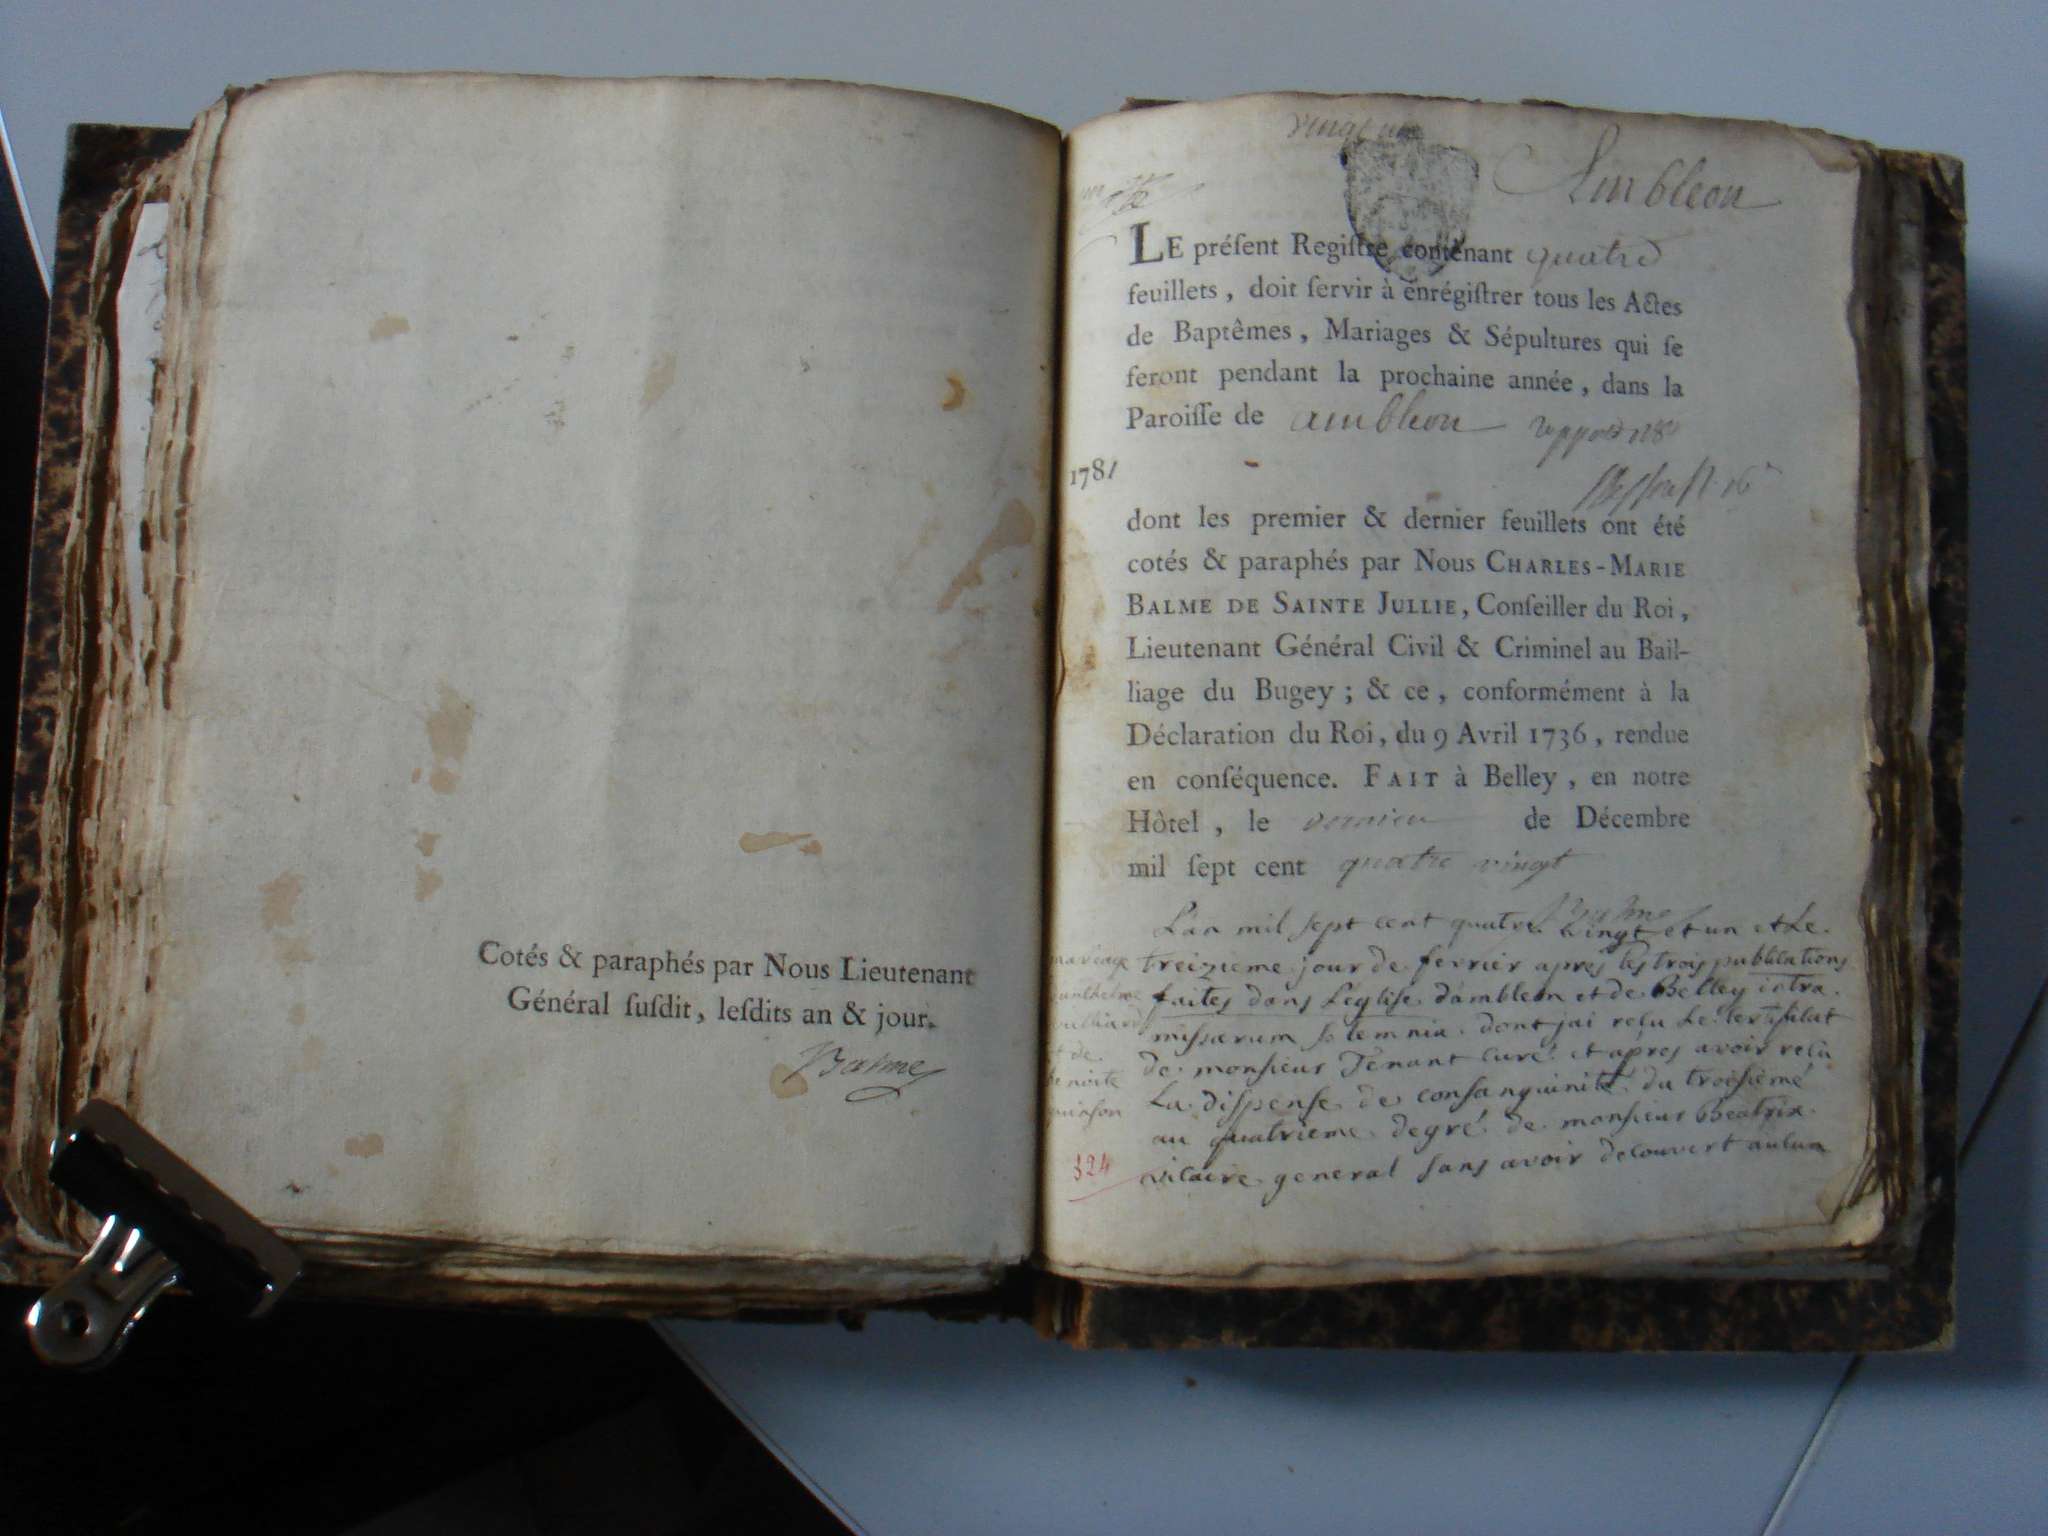 Cotés & paraphés par Nous Lieutenant
Général ſuſdit, leſdits an & jour.
Balme
vingt un
Ambleon
LE préſent Regiſtre contenant quatre
feuillets, doit ſervir à enrégiſtrer tous les Actes
de Baptêmes, Mariages & Sépultures qui ſe
feront pendant la prochaine année, dans la
Paroiſſe de ambleon
1781
dont les premier & dernier feuillets ont été
cotés & paraphés par Nous CHARLES-MARIE
BALME DE SAINTE JULLIE, Conſeiller du Roi,
Lieutenant Général Civil & Criminel au Bail-
liage du Bugey; & ce, conformément à la
Déclaration du Roi, du 9 Avril 1736, rendue
en conſéquence. FAIT à Belley, en notre
Hôtel, le dernier de Décembre
mil ſept cent quatre vingt
Balme
L'an mil sept cent quatre vingt et un et le
treizieme jour de fevrier apres les trois publications
faites dans l'église d'ambleon et de Belley intra
missarum solemnia dont jai reçu le certificat
de monsieur Tenant curé et apres avoir reçu
La dispense de consanguinité du troisiemé
au quatrieme degré de monsieur Beatrix
vicaire general sans avoir decouvert aucun
mariage
vulliard
et de
benoite
324